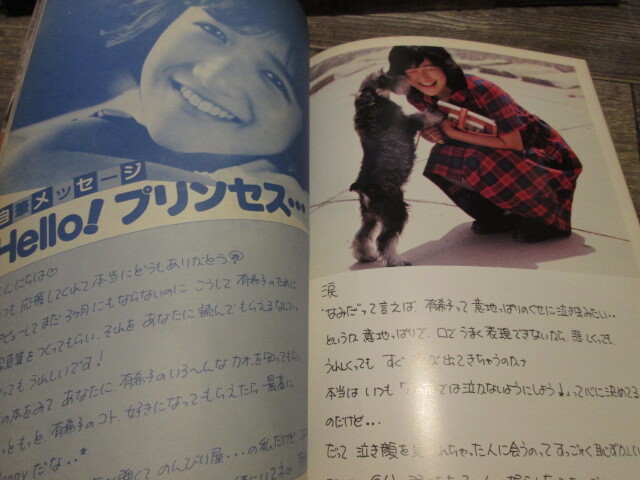 自筆メッセージ
Hello! プリンセス…
こんにちは♡
つも 応援してくれて 本当に どうもありがとう
ビューして まだ 3ヶ月にもならないのに こうして 有希子のために
写真集をつくってもらい、それを あなたに 読んでもらえるなんて、
っても うれしいです!
の本をみて あなたに 有希子の いろ〜んな カオを 知ってもらい
っともっと 有希子のコト 好きになって もらえたら 最高に
Happy だな…*
のんびり屋…の私だけど
涙
"なみだ"って言えば、有希子って 意地っぱりのくせに 泣き虫みたい‥
というか 意地っぱりで、口でうまく 表現できないから 悲しくても
うれしくても すぐ 出てきちゃうのカナ
本当は いつも では泣かないようにしよう」って心に決めてる
のだけど…
だって 泣き顔を 見られちゃった人に会うのって すっごく 恥ずかしい